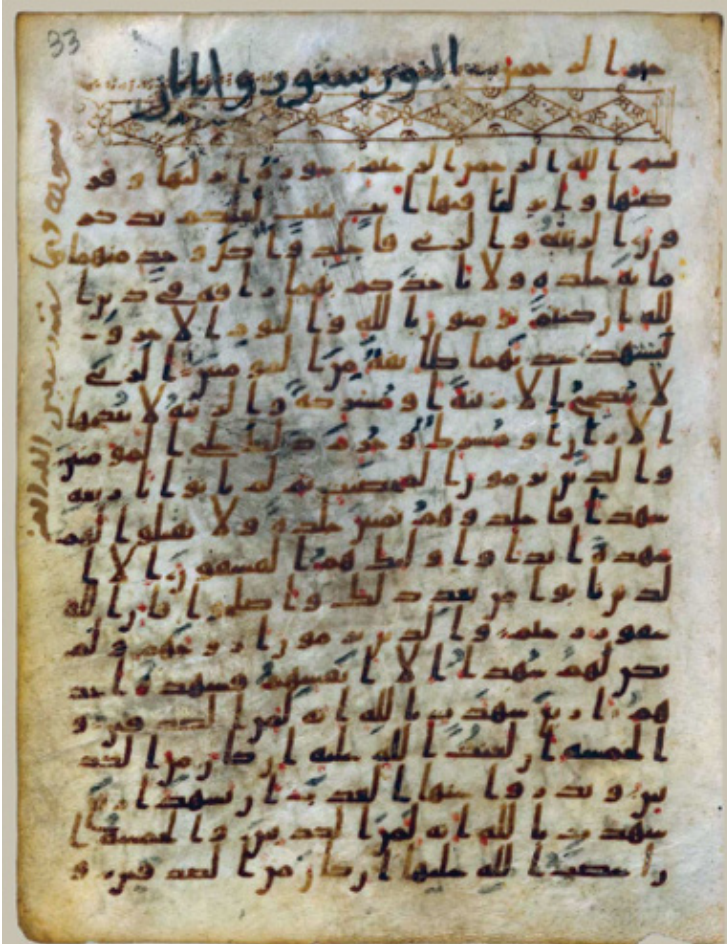 33
خير الرحمين النور ستون و
بسم الله الرحمن الرحيم سورة انزلنها وفر
ضنها وانزلنا فيها ايت بينت لعلكم تذكر
ون الزنية والزني فاجلدوا كل وحد منهما
مائة جلدة ولا تاخذكم بهما رافة في دين ا
لله ان كنتم تومنون بالله واليوم الاخر و
ليشهد عذبهما طائفة من المومنين الزني
لا ينكح الا زنية او مشركة والزنية لا ينكحها
الا زان او مشرك وحرم ذلك على المومنين
والذين يرمون المحصنت ثم لم ياتوا باربعة
شهدا فاجلدوهم ثمنين جلدة ولا تقبلوا لهم
شهدة ابدا واولئك هم الفسقون الا ا
لذين تابوا من بعد ذلك واصلحوا فان الله
غفور رحيم والذين يرمون ازوجهم ولم
يكن لهم شهدا الا انفسهم فشهدة احد
هم اربع شهدت بالله انه لمن الصدقين و
الخمسة ان لعنت الله عليه ان كان من الكذ
بين ويدروا عنها العذب ان تشهد اربع
شهدت بالله انه لمن الكذبين والخمسة ا
ن غضب الله عليها ان كان من الصدقين و